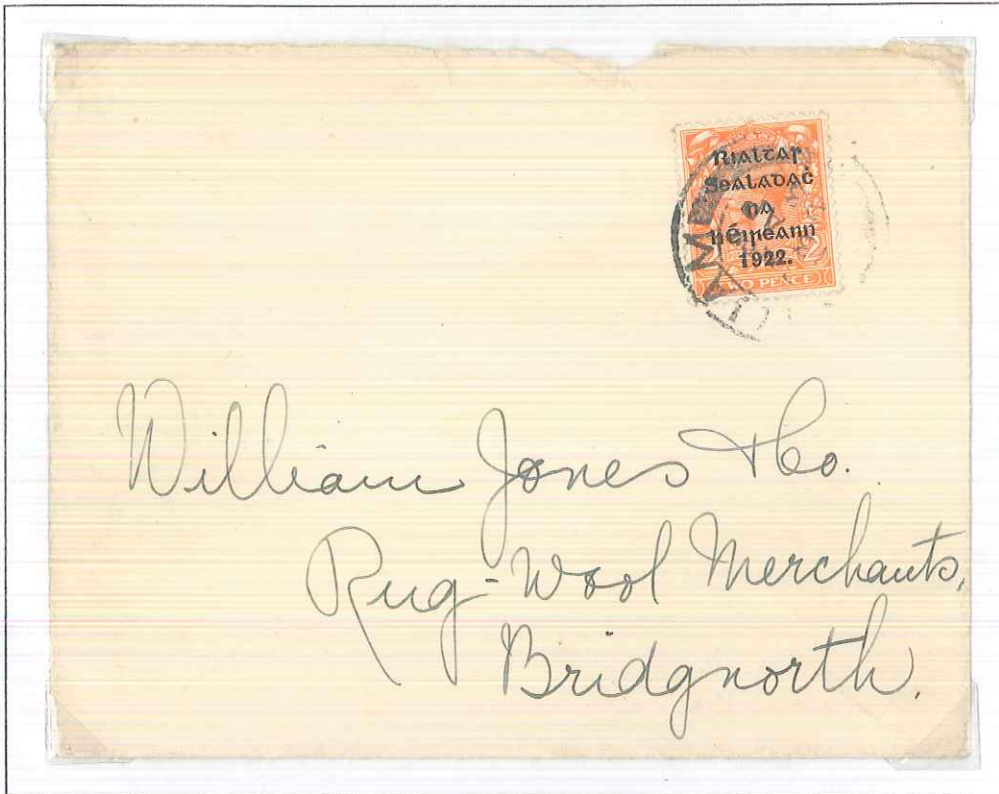 Rialtar
Sealadaċ
na
hÉireann
1922.
TWO PENCE
2
William Jones & Co.
Rug-Wool Merchants,
Bridgnorth.